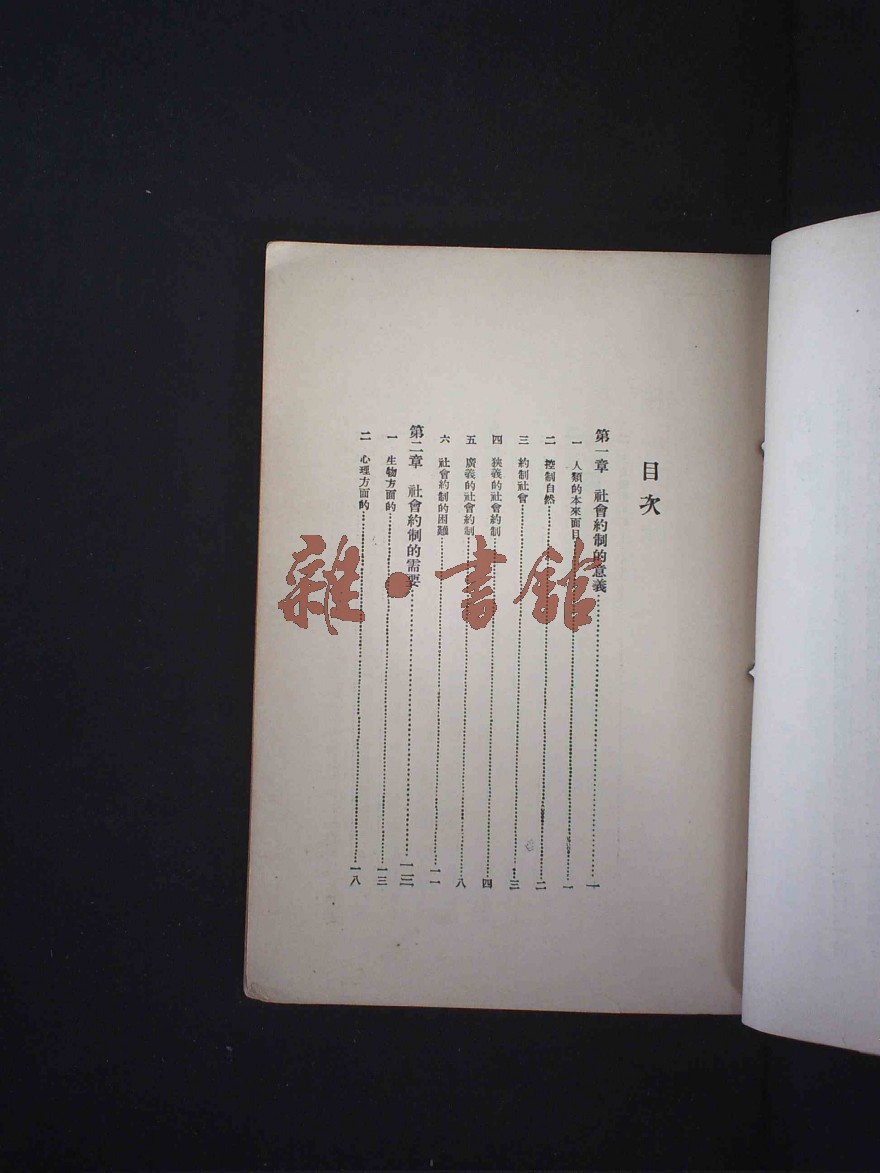 目次
第一章 社會約制的意義 一
一 人類的本來面目 一
二 控制自然 二
三 約制社會 三
四 狹義的社會約制 四
五 廣義的社會約制 八
六 社會約制的困難 一一
第二章 社會約制的需要 一三
一 生物方面的 一三
二 心理方面的 一八
雜·書館